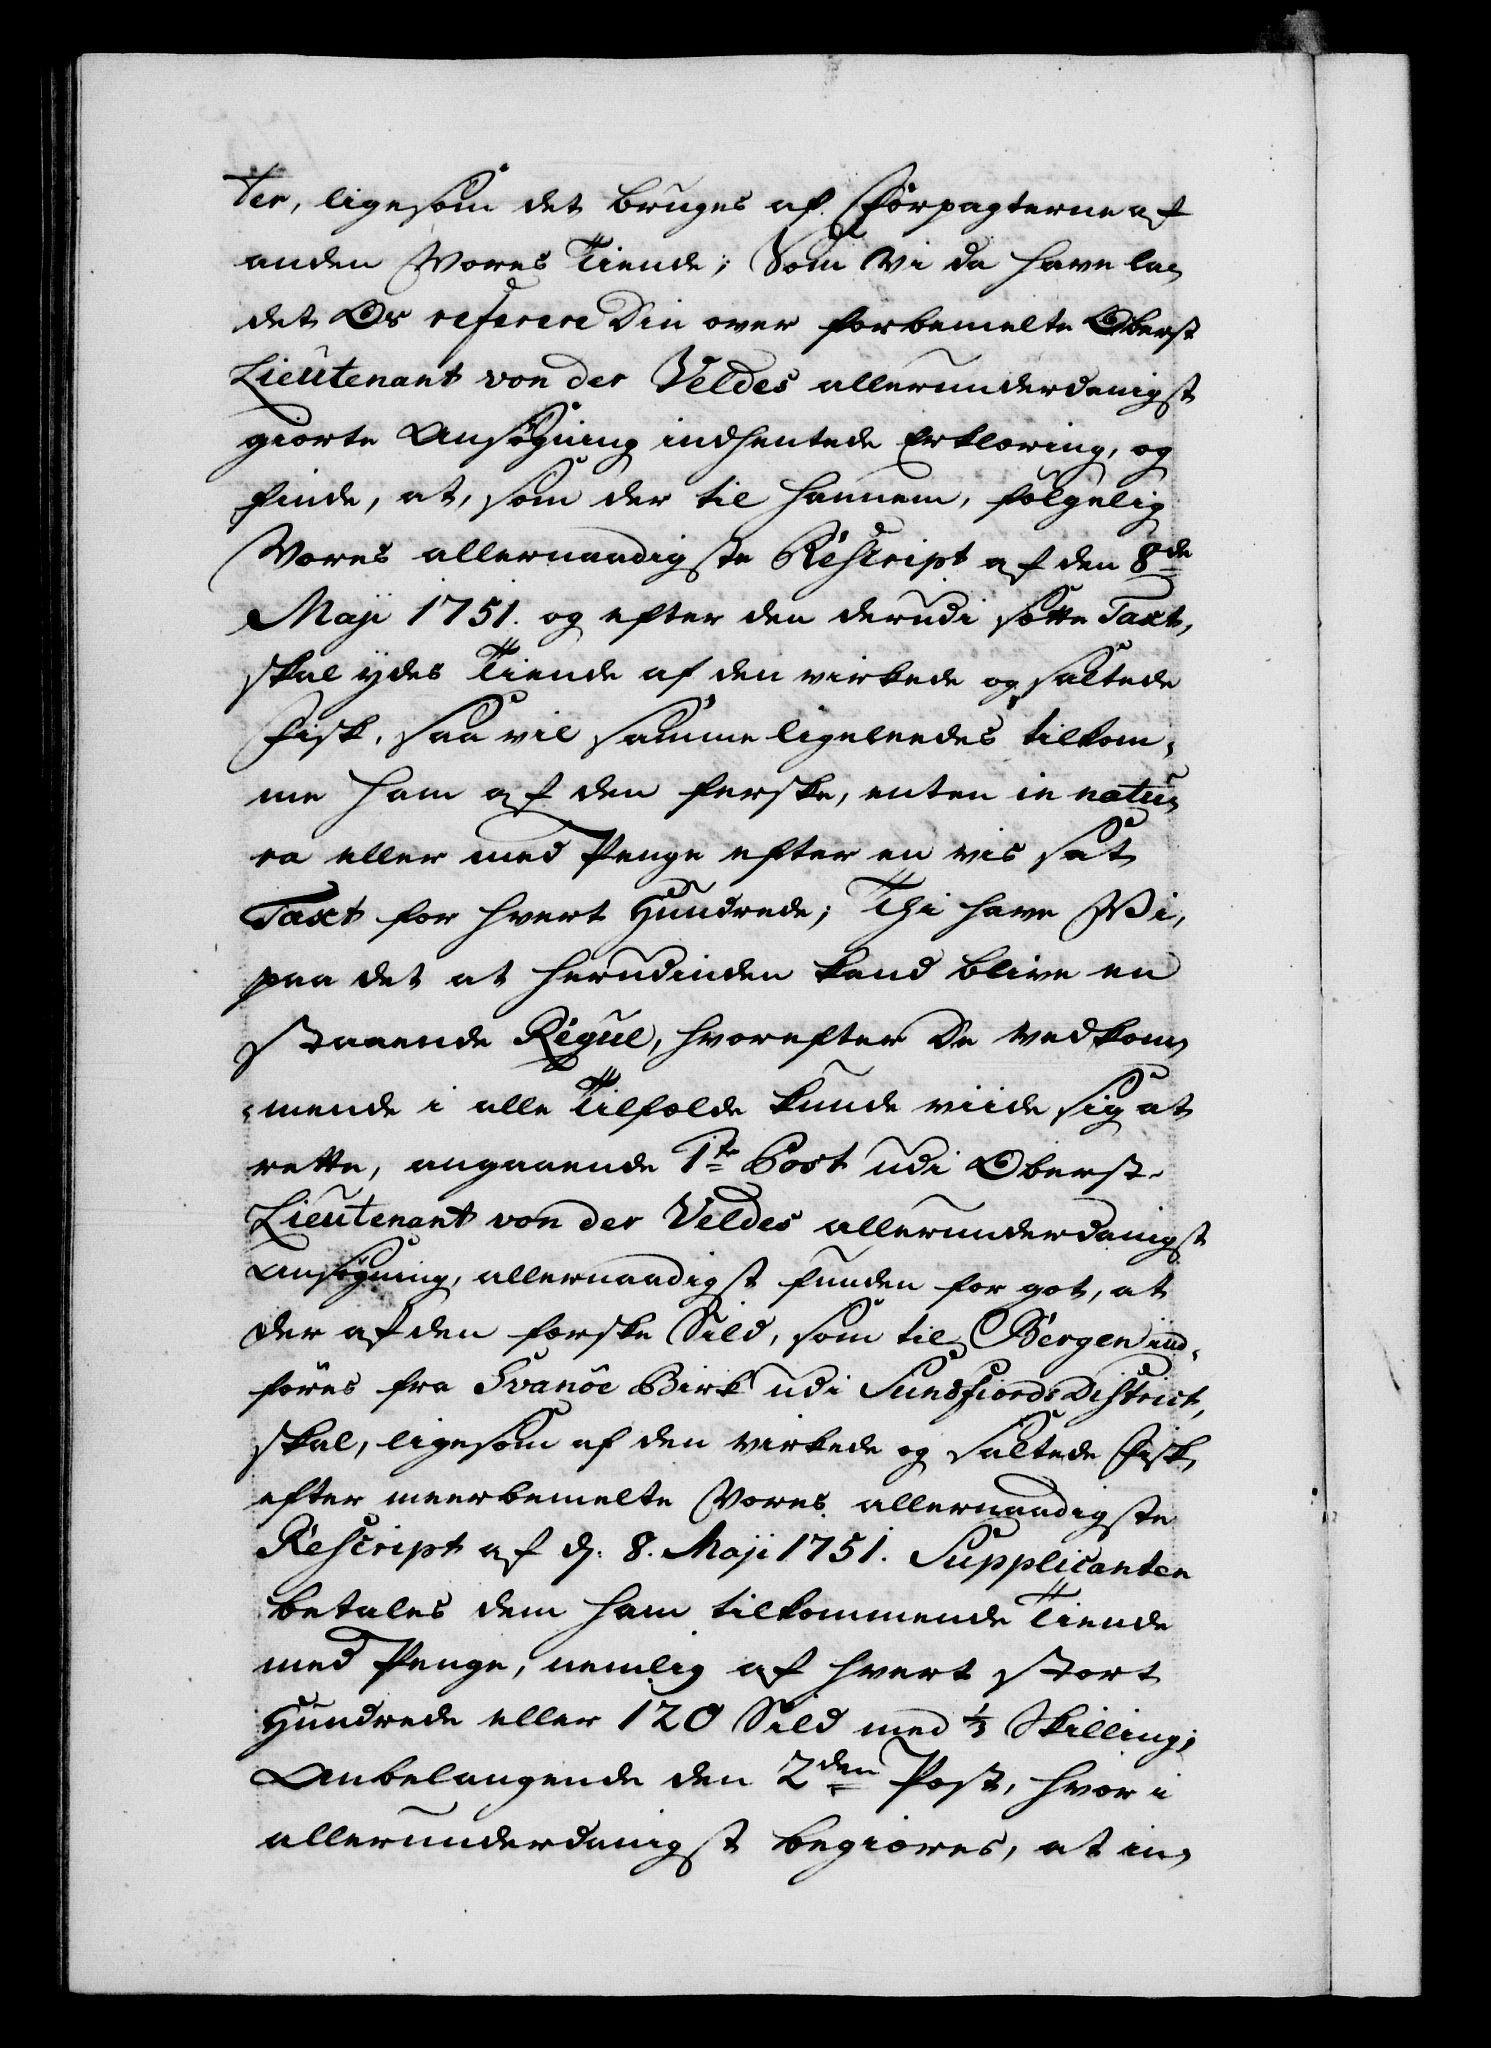 ter, ligesom det bruges af Forpagterne af
anden Vores Tiende; Som Vi da have la⸗
det Os referere Din over forbemelte Oberst
Lieutenant von der Veldes allerunderdanigst
giorte Ansøgning indhentede Erklæring, og
finde, at, som der til hannem, følgelig
Vores allernaadigste Rescript af den 8de
Maji 1751. og efter den derudi satte Taxt,
skal ydes Tiende af den virkede og saltede
Fisk, saa vil samme ligeleedes tilkom⸗
me ham af den ferske, enten in natu⸗
ra eller med Penge efter en vis sat
Taxt for hvert Hundrede; Thi have Vi,
paa det at herudinden kand blive en
staaende Regul, hvorefter De Vedkom⸗
⸗mende i alle Tilfælde kunde viide sig at
rette, angaaende 1te Post udi Oberst⸗
Lieutenant von der Veldes allerunderdanigst
Ansøgning, allernaadigst funden for got, at
der af den ferske Sild, som til Bergen ind⸗
føres fra Svanöe Birk udi SundfiordsDistrict,
skal, ligesom af den virkede og saltede Fisk,
efter meerbemelte Vores allernaadigste
Rescript af d. 8. Maji 1751. Supplicanten
betales dem ham tilkommende Tiende
med Penge, nemlig af hvert stort
Hundrede eller 120 Sild med 1/3 Skilling;
Anbelangende den 2den Post, hvor i
allerunderdanigst begiæres, at in⸗